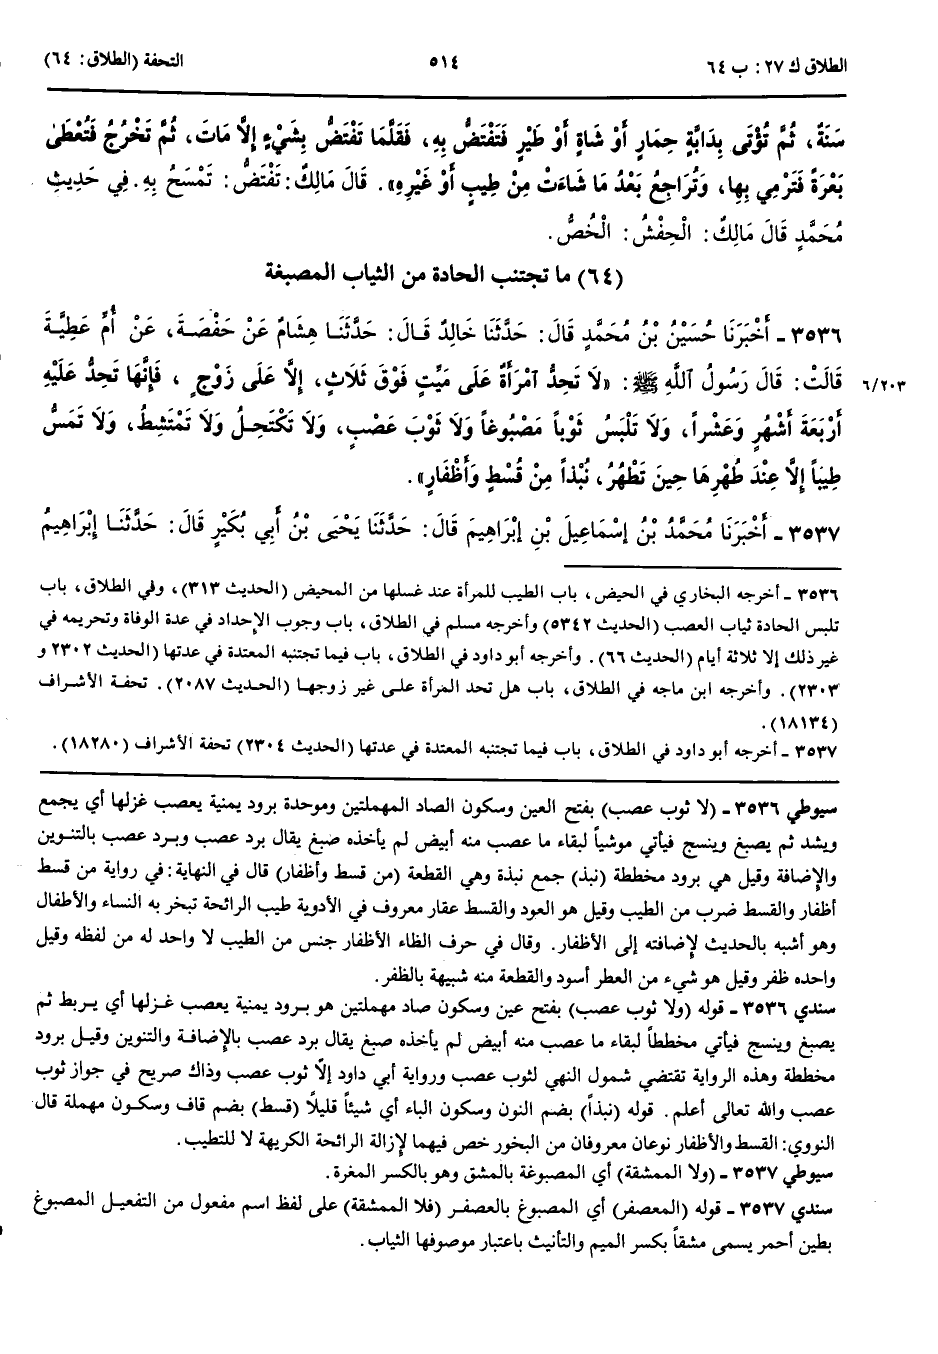 الطلاق ك ٢٧: ب ٦٤ ٥١٤ التحفة (الطلاق: ٦٤)
سَنَةٌ، ثُمَّ تُؤْتَى بِدَابَّةٍ حِمَارٍ أَوْ شَاةٍ أَوْ طَيْرٍ فَتَفْتَضُّ بِهِ، فَقَلَّمَا تَفْتَضُّ بِشَيْءٍ إِلاَّ مَاتَ، ثُمَّ تَخْرُجُ فَتُعْطَىٰ
بَعْرَةً فَتَرْمِي بِهَا، وَتُرَاجِعُ بَعْدُ مَا شَاءَتْ مِنْ طِيبٍ أَوْ غَيْرِهِ». قَالَ مَالِكٌ: تَفْتَضُّ: تَمْسَحُ بِهِ. فِي حَدِيثِ
مُحَمَّدٍ قَالَ مَالِكٌ: الْحِفْشُ: الْخُصُّ.
(٦٤) ما تجتنب الحادة من الثياب المصبغة
٣٥٣٦ ـ أَخْبَرَنَا حُسَيْنُ بْنُ مُحَمَّدٍ قَالَ: حَدَّثَنَا خَالِدٌ قَالَ: حَدَّثَنَا هِشَامٌ عَنْ حَفْصَةَ، عَنْ أُمِّ عَطِيَّةَ
قَالَتْ: قَالَ رَسُولُ ٱللَّهِ ﷺ: «لاَ تَحِدُّ ٱمْرَأَةٌ عَلَى مَيِّتٍ فَوْقَ ثَلاَثٍ، إِلاَّ عَلَى زَوْجٍ ، فَإِنَّهَا تَحِدُّ عَلَيْهِ ٦/٢٠٣
أَرْبَعَةَ أَشْهُرٍ وَعَشْراً، وَلاَ تَلْبَسُ ثَوْباً مَصْبُوغاً وَلاَ ثَوْبَ عَصْبٍ، وَلاَ تَكْتَحِلُ وَلاَ تَمْتَشِطُ، وَلاَ تَمَسُّ
طِيباً إِلاَّ عِنْدَ طُهْرِهَا حِينَ تَطْهُرُ، نُبْذاً مِنْ قُسْطٍ وَأَظْفَارٍ».
٣٥٣٧ ـ أَخْبَرَنَا مُحَمَّدُ بْنُ إِسْمَاعِيلَ بْنِ إِبْرَاهِيمَ قَالَ: حَدَّثَنَا يَحْيَى بْنُ أَبِي بُكَيْرٍ قَالَ: حَدَّثَنَا إِبْرَاهِيمُ
٣٥٣٦ ـ أخرجه البخاري في الحيض، باب الطيب للمرأة عند غسلها من المحيض (الحديث ٣١٣)، وفي الطلاق، باب
تلبس الحادة ثياب العصب (الحديث ٥٣٤٢) وأخرجه مسلم في الطلاق، باب وجوب الإحداد في عدة الوفاة وتحريمه في
غير ذلك إلا ثلاثة أيام (الحديث ٦٦). وأخرجه أبو داود في الطلاق، باب فيما تجتنبه المعتدة في عدتها (الحديث ٢٣٠٢ و
٢٣٠٣). وأخرجه ابن ماجه في الطلاق، باب هل تحد المرأة على غير زوجها (الحديث ٢٠٨٧). تحفة الأشراف
(١٨١٣٤).
٣٥٣٧ ـ أخرجه أبو داود في الطلاق، باب فيما تجتنبه المعتدة في عدتها (الحديث ٢٣٠٤) تحفة الأشراف (١٨٢٨٠).
سيوطي ٣٥٣٦ ـ (لا ثوب عصب) بفتح العين وسكون الصاد المهملتين وموحدة برود يمنية يعصب غزلها أي يجمع
ويشد ثم يصبغ وينسج فيأتي موشياً لبقاء ما عصب منه أبيض لم يأخذه صبغ يقال برد عصب وبرد عصب بالتنوين
والإضافة وقيل هي برود مخططة (نبذ) جمع نبذة وهي القطعة (من قسط وأظفار) قال في النهاية: في رواية من قسط
أظفار والقسط ضرب من الطيب وقيل هو العود والقسط عقار معروف في الأدوية طيب الرائحة تبخر به النساء والأطفال
وهو أشبه بالحديث لإضافته إلى الأظفار. وقال في حرف الظاء الأظفار جنس من الطيب لا واحد له من لفظه وقيل
واحده ظفر وقيل هو شيء من العطر أسود والقطعة منه شبيهة بالظفر.
سندي ٣٥٣٦ ـ قوله (ولا ثوب عصب) بفتح عين وسكون صاد مهملتين هو برود يمنية يعصب غزلها أي يربط ثم
يصبغ وينسج فيأتي مخططاً لبقاء ما عصب منه أبيض لم يأخذه صبغ يقال برد عصب بالإضافة والتنوين وقيل برود
مخططة وهذه الرواية تقتضي شمول النهي لثوب عصب ورواية أبي داود إلاّ ثوب عصب وذاك صريح في جواز ثوب
عصب والله تعالى أعلم. قوله (نبذاً) بضم النون وسكون الباء أي شيئاً قليلاً (قسط) بضم قاف وسكون مهملة قال
النووي: القسط والأظفار نوعان معروفان من البخور خص فيهما لإزالة الرائحة الكريهة لا للتطيب.
سيوطي ٣٥٣٧ ـ (ولا الممشقة) أي المصبوغة بالمشق وهو بالكسر المغرة.
سندي ٣٥٣٧ ـ قوله (المعصفر) أي المصبوغ بالعصفر (فلا الممشقة) على لفظ اسم مفعول من التفعيل المصبوغ
بطين أحمر يسمى مشقاً بكسر الميم والتأنيث باعتبار موصوفها الثياب.